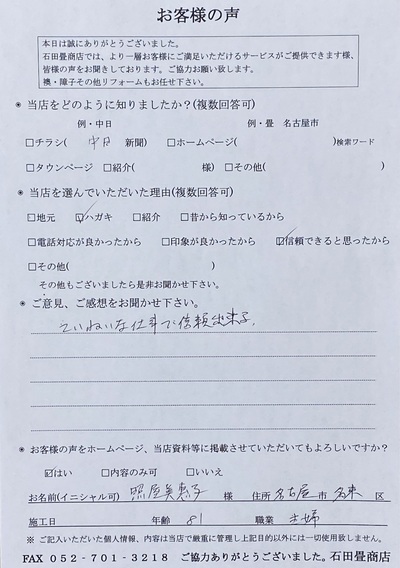 お客様の声
本日は誠にありがとうございました。
石田畳商店では、より一層お客様にご満足いただけるサービスがご提供できます様、
皆様の声をお聞きしております。ご協力お願い致します。
襖・障子その他リフォームもお任せ下さい。
◉ 当店をどのように知りましたか？(複数回答可)
例・中日 例・畳 名古屋市
□チラシ( 中日 新聞) □ホームページ( )検索ワード
□タウンページ □紹介( 様) □その他( )
◉ 当店を選んでいただいた理由(複数回答可)
□地元 ☑ハガキ □紹介 □昔から知っているから
□電話対応が良かったから □印象が良かったから ☑信頼できると思ったから
□その他( )
その他もございましたら是非お聞かせ下さい。
◉ ご意見、ご感想をお聞かせ下さい。
ていねいな仕事で信頼出来る。
◉ お客様の声をホームページ、当店資料等に掲載させていただいてもよろしいですか？
☑はい □内容のみ可 □いいえ
お名前(イニシャル可) 照屋美恵子 様 住所 名古屋 市 名東 区
施工日 年齢 81 職業 主婦
※ ご記入いただいた個人情報、内容は当店で厳重に管理し上記目的以外には一切使用致しません。
FAX 052-701-3218 ご協力ありがとうございました。石田畳商店